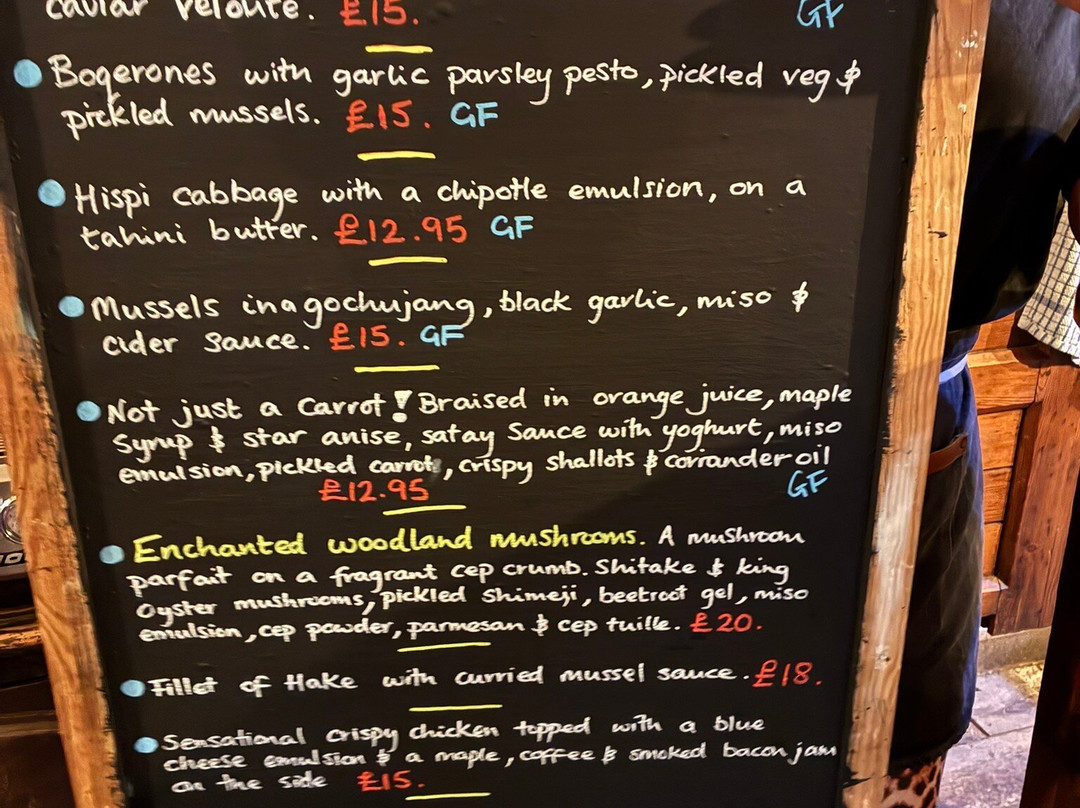 caviar veloute. £15. GF
Boqerones with garlic parsley pesto, pickled veg &
pickled mussels. £15. GF
Hispi cabbage with a chipotle emulsion, on a
tahini butter. £12.95 GF
Mussels in a gochujang, black garlic, miso &
cider sauce. £15. GF
Not just a Carrot! Braised in orange juice, maple
Syrup & star anise, satay Sauce with yoghurt, miso
emulsion, pickled carrot, crispy shallots & coriander oil
£12.95 GF
Enchanted woodland mushrooms. A mushroom
parfait on a fragrant cep crumb. Shitake & king
Oyster mushrooms, pickled Shimeji, beetroot gel, miso
emulsion, cep powder, parmesan & cep tuille. £20.
Fillet of Hake with curried mussel sauce. £18.
Sensational crispy chicken topped with a blue
cheese emulsion & a maple, coffee & smoked bacon jam
on the side £15.